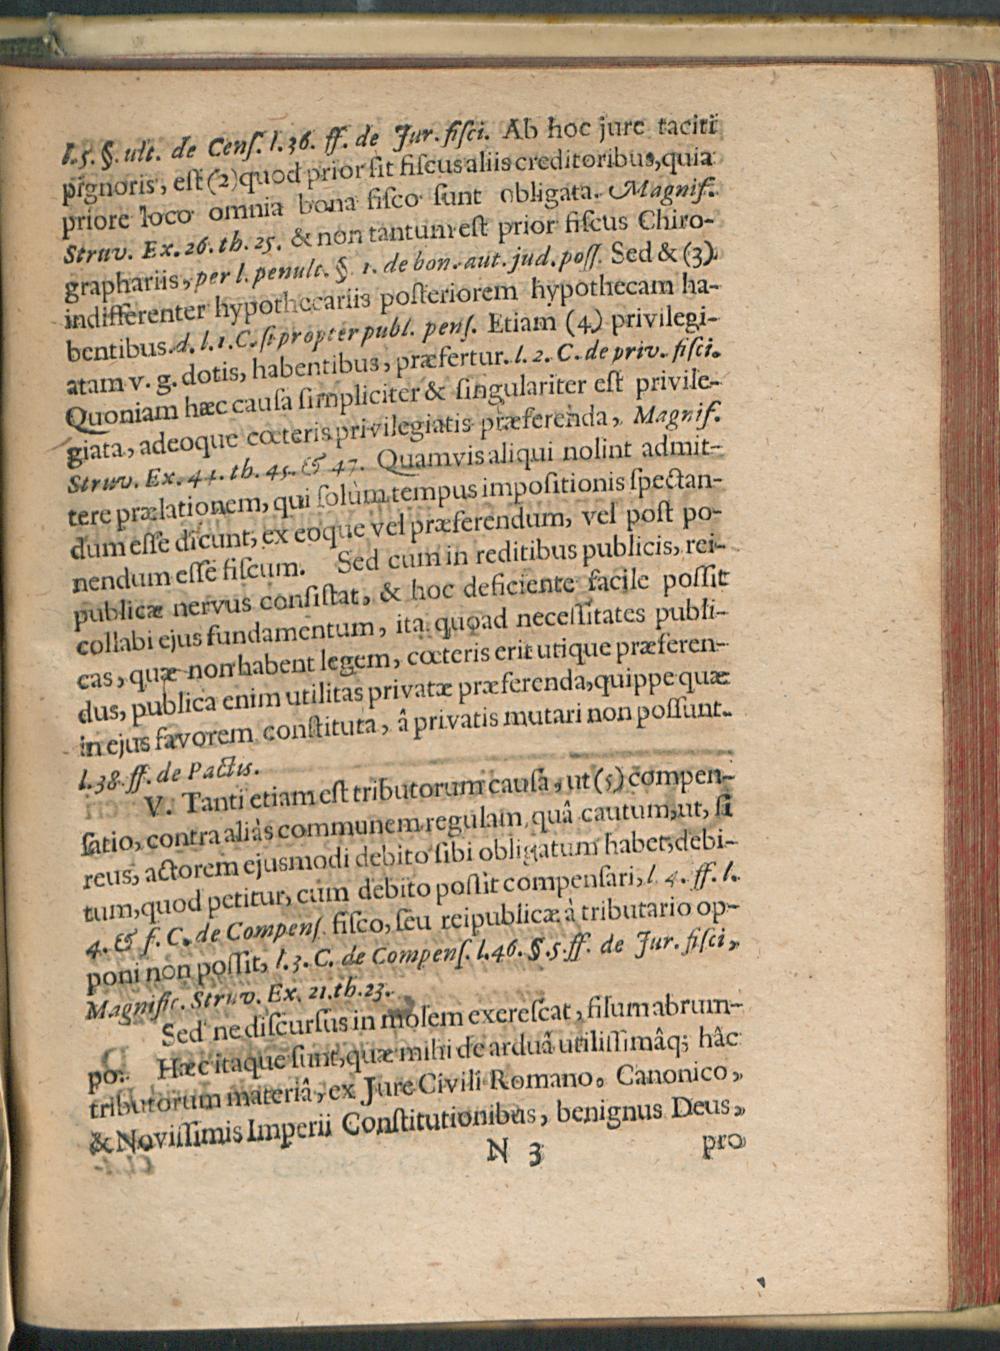 l.5. §. ult. de Cenſ. l.36. ff. de Jur. fiſci. Ab hoc jure taciti
pignoris, eſt (2) quod prior ſit fiſcus aliis creditoribus, quia
priore loco omnia bona fiſco ſunt obligata. Magnif.
Struv. Ex. 26. th. 25. & non tantum eſt prior fiſcus Chiro-
graphariis, per l. penult. §. 1. de bon. aut. jud. poſſ. Sed & (3)
indifferenter hypothecariis poſteriorem hypothecam ha-
bentibus. d. l. 1. C. ſi propter publ. penſ. Etiam (4) privilegi-
atam v. g. dotis, habentibus, præfertur. l. 2. C. de priv. fiſci.
Quoniam hæc cauſa ſimpliciter & ſingulariter eſt privile-
giata, adeoque cœteris privilegiatis præferenda, Magnif.
Struv. Ex. 44. th. 45. & 47. Quamvis aliqui nolint admit-
tere prælationem, qui ſolùm tempus impoſitionis ſpectan-
dum eſſe dicunt, ex eoque vel præferendum, vel poſt po-
nendum eſſe fiſcum. Sed cum in reditibus publicis, rei-
publicæ nervus conſiſtat, & hoc deficiente facile poſſit
collabi ejus fundamentum, ita quoad neceſſitates publi-
cas, quæ non habent legem, cœteris erit utique præferen-
dus, publica enim utilitas privatæ præferenda, quippe quæ
in ejus favorem conſtituta, â privatis mutari non poſſunt.
l.38. ff. de Pactis.
V. Tanti etiam eſt tributorum cauſa, ut (5) compen-
ſatio, contra aliàs communem regulam, quâ cautum, ut, ſi
reus, actorem ejusmodi debito ſibi obligatum habet, debi-
tum, quod petitur, cum debito poſſit compenſari, l. 4. ff. l.
4. & f. C. de Compenſ. fiſco, ſeu reipublicæ à tributario op-
poni non poſſit, l. 3. C. de Compenſ. l.46. §. 5. ff. de Jur. fiſci,
Magnific. Struv. Ex. 21. th. 23.
Sed ne diſcurſus in molem exereſcat, filum abrum-
po. Hæc itaque ſunt, quæ mihi de arduâ utiliſſimâq; hâc
tributorum materiâ, ex Jure Civili Romano. Canonico,
& Noviſſimis Imperii Conſtitutionibus, benignus Deus,
N 3 pro